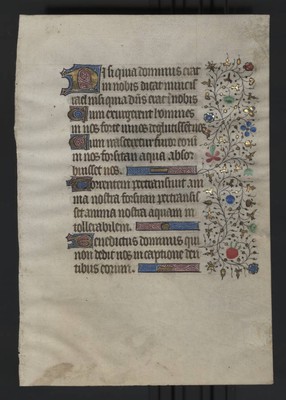 Nisi quia dominus erat
in nobis dicat nunc is
rael nisi quia dns erat i nobis
Cum exurgerent homines
in nos forte vivos deglutissent nos
Cum irasceretur furor eorum
in nos forsitan aqua absor
buisset nos.
Torrentem pertransivit ani
ma nostra forsitan pertransis
set anima nostra aquam in
tollerabilem.
Benedictus dominus qui
non dedit nos in captione den
tibus eorum.